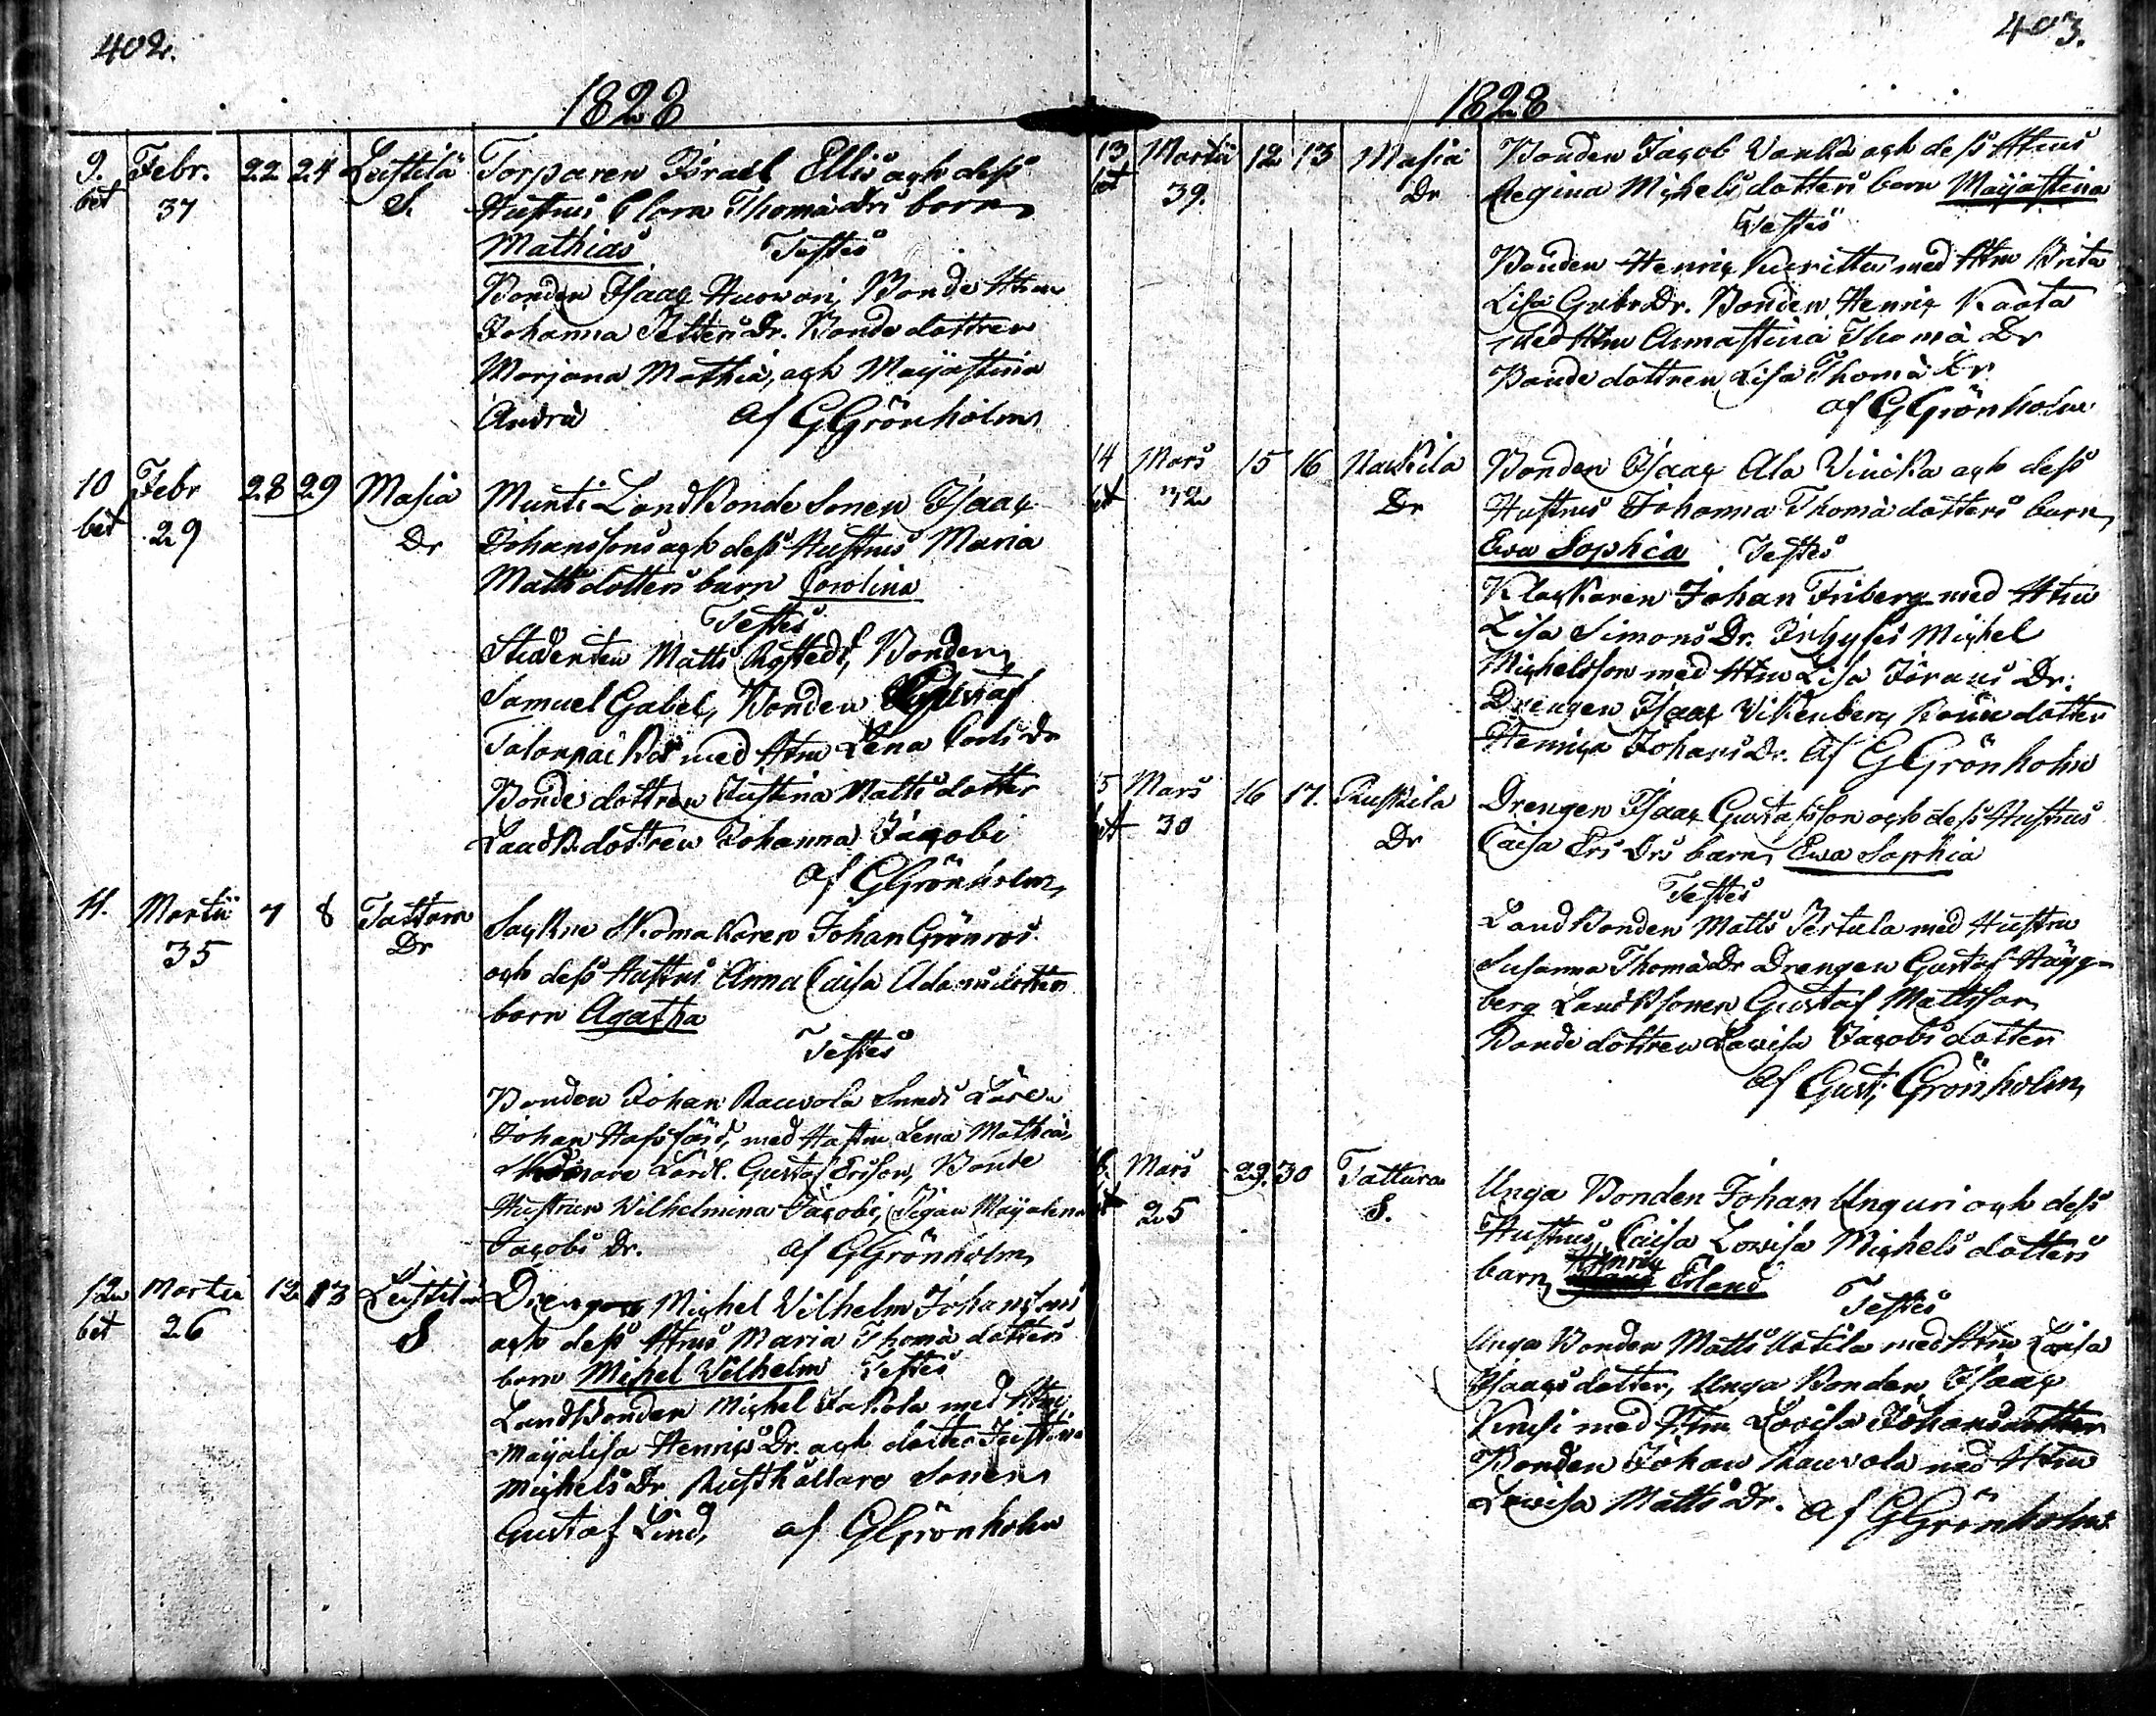 402.
1828
9. Febr. 22 24 Leistilä Torparen Israel Ellis och dess
bet 37 S. Hustrus Clara Thomä drs barn
Mathias Testes
Bonden Isaac Huowari, Bonde Hrn
Johanna Petters Dr. Bonde dottren
Marjana Mathiä, och Maijastina
Andrä af GGrönholm
10 Febr 28 29 Masia Munti Landbonde Sonen Isaac
bet 29 Dr Johanssons och dess Hustrus Maria
Matts dotters barn Carolina
Testes
Studenten Matts Bonden
Samuel Gabel, Bonden Gustaf
med Hrn Lena Carls Dr
Bonde dottren Justina Matts dotter
LandB. dottren Johanna Jacobi
af GGrönholm
11. Martii 7 8 Tattara Sockne Skomakaren Johan Grönros
35 Dr och dess Hustrus Anna Caisa Adams dotters
barn Agatha
Testes
Bonden Johan Rauvola Smeds Lären
Johan med Hustru Lena Mathiä,
Lärl. Gustaf Ersson, Bonde
Hustrun Wilhelmina Jacobi, Pigan Maijalena
Jacobs Dr. af GGrönholm
12 Martii 12 13 Leistilä Drengen Michel Vilhelm Johanssons
bet 26 S och dess Hrus Maria Thomä dotters
barn Michel Vilhelm Testes
Landbonden Michel Jakola med Hru
Maijalisa Henrics Dr. och dotter Justina
Michels Dr Rusthållare Sonen
Gustaf Lind, af GGrönholm
403.
1828
13 Martii 12 13 Masia Bonden Jacob Vanha och dess Hrus
bet 39. Dr Regina Michels dotters barn Maijastina
Testes
Bonden Henric Kuoritta med Hru Brita
Lisa Gabr Dr. Bonden Henric Kaata
med Hru Annastina Thomä Dr
Bonde dottren Lisa Thomä Dr
af GGrönholm
14 Mars 15 16 Nackila Bonden Isaac Ala Vinicka och dess
bet 32 Dr Hustrus Johanna Thomä dotters barn
Ewa Sophia Testes
Klockaren Johan Friberg med Hru
Lisa Simons Dr. Inhyses Michel
Michelsson med Hru Lisa Jörans Dr.
Drengen Isaac Vikenberg dotter
Henrica Johans Dr. af GGrönholm
15 Mars 16 17. Ruskila Drengen Isaac Gustafsson och dess Hustrus
bet 30 Dr Caisa Ers Drs barn Ewa Sophia
Testes
Landbonden Matts Pertula med Hustru
Susanna Thomä Dr Drengen Gustaf Hägg-
berg LandB sonen Gustaf Mattsson
Bonde dottren Lovisa Jacobs dotter
af Gust. Grönholm
16. Mars 29. 30 Tattara Unga Bonden Johan Unguri och dess
bet 25 S. Hustrus, Caisa Lovisa Michels dotters
Henric
barn Erland Testes
Unga Bonden Matts Uotila med Hru Lovisa
Isaacs dotter, Unga Bonden Isaac
med Hru Lovisa Johans dotter
Bonden Johan Rauvola med Hru
Lovisa Matts Dr. af GGrönholm